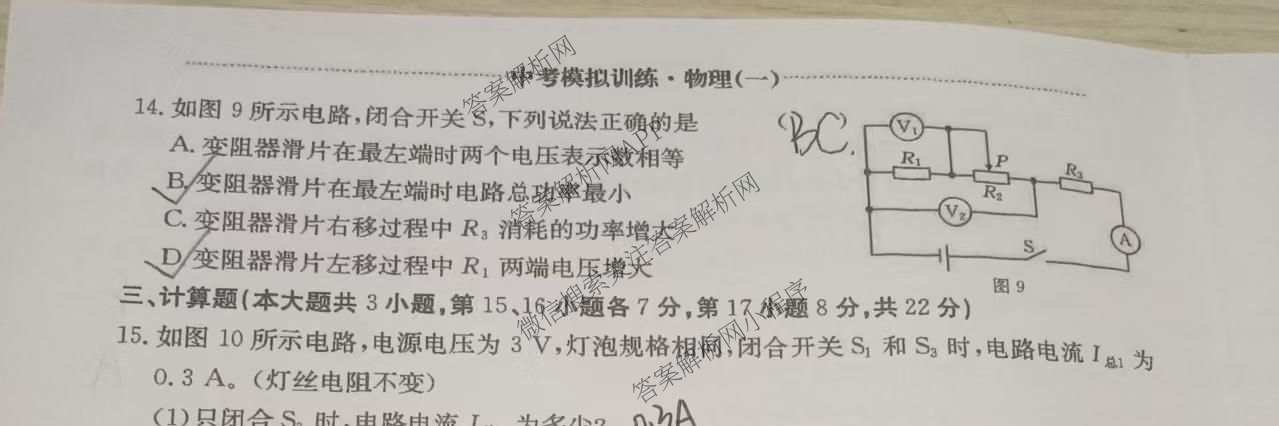 中考模拟训练·物理(一)
14. 如图 9 所示电路,闭合开关 S,下列说法正确的是 (BC).
A. 变阻器滑片在最左端时两个电压表示数相等
B. 变阻器滑片在最左端时电路总功率最小
C. 变阻器滑片右移过程中 R₃ 消耗的功率增大
D. 变阻器滑片左移过程中 R₁ 两端电压增大
V₁
R₁
P
R₂
R₃
V₂
A
S
图 9
三、计算题(本大题共 3 小题,第 15、16 小题各 7 分,第 17 小题 8 分,共 22 分)
15. 如图 10 所示电路,电源电压为 3 V,灯泡规格相同,闭合开关 S₁ 和 S₃ 时,电路电流 I总1 为
0.3 A。(灯丝电阻不变)
(1)只闭合 S 时,电路电流 I 为多少? 0.3A
答案解析网
答案解析网APP
微信搜索关注答案解析网
答案解析网小程序